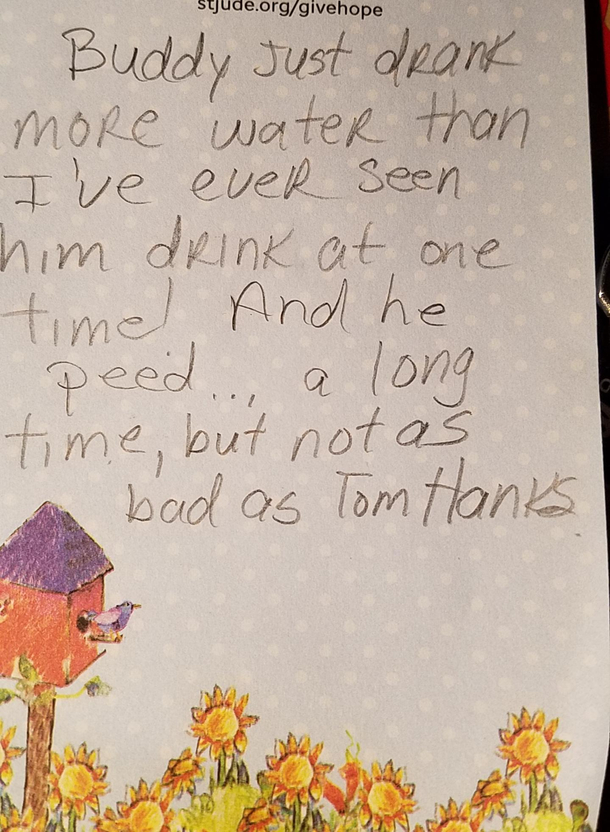 stjude.org/givehope
Buddy just drank
more water than
I've ever seen
him drink at one
time! And he
peed..., a long
time, but not as
bad as Tom Hanks